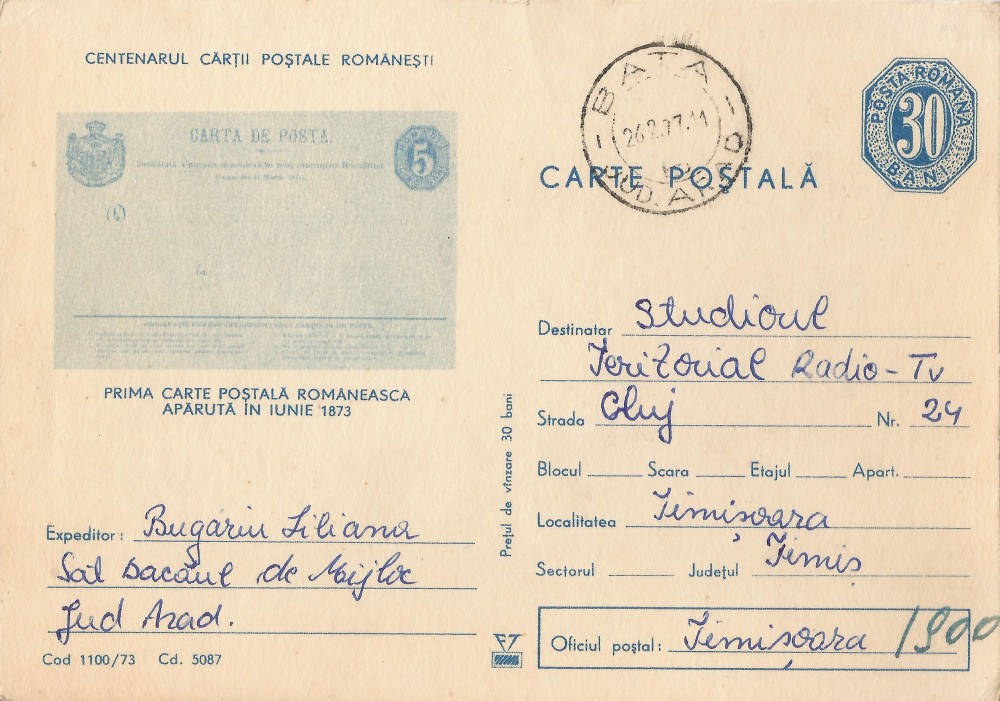 CENTENARUL CĂRȚII POȘTALE ROMÂNEȘTI
CARTA DE POSTA.
5
PRIMA CARTE POȘTALĂ ROMÂNEASCA
APĂRUTĂ ÎN IUNIE 1873
Expeditor: Bugariu Liliana
Sat Bacăul de Mijloc
Jud Arad.
Cod 1100/73 Cd. 5087
Prețul de vînzare 30 bani
BATA
JUD. ARAD
POSTA ROMANA
30
BANI
CARTE POȘTALĂ
Destinatar Studioul
Teritorial Radio-Tv
Strada Cluj Nr. 24
Blocul Scara Etajul Apart.
Localitatea Timișoara
Sectorul Județul Timiș
Oficiul poștal: Timișoara 1900